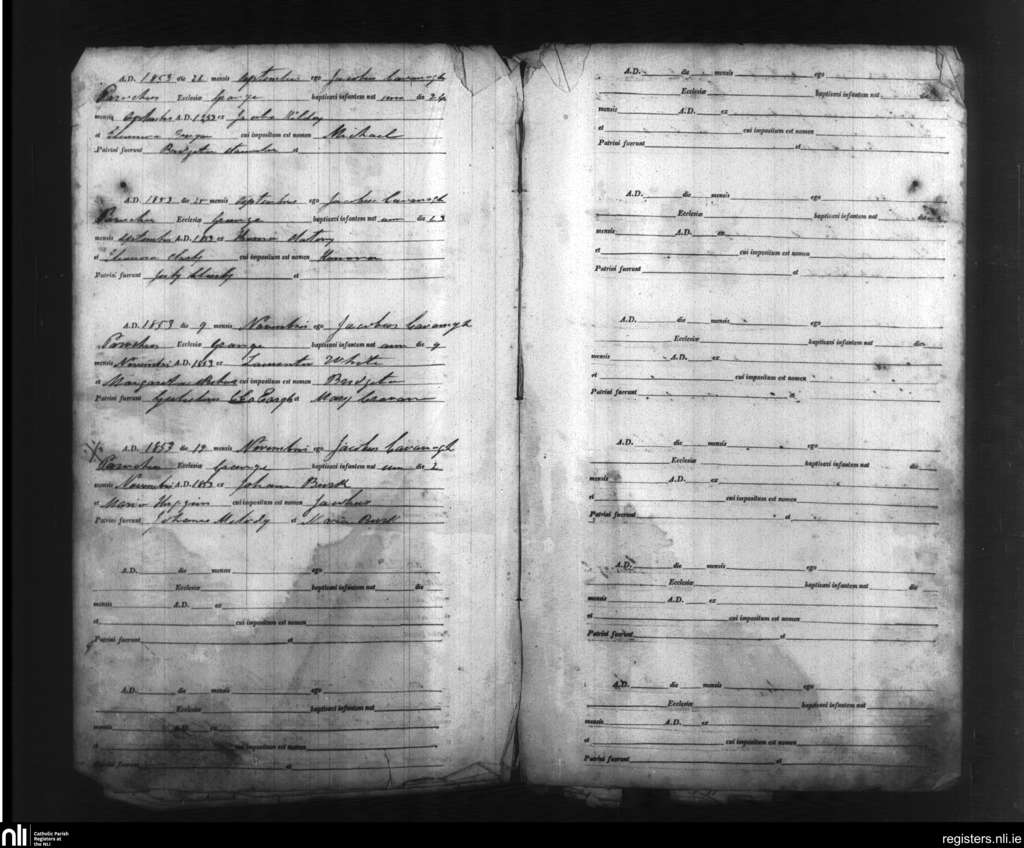 A.D. 1853 die 26 mensis Septembris ego Jacobus Cavanagh
Parochus Ecclesiæ Grange baptizavi infantem nat um die 26
mensis Septembris A.D. 1853 ex Jacobo
et Eleanora cui impositum est nomen Michael
Patrini fuerunt Bridgeta et
A.D. 1853 die mensis Septembris ego Jacobus Cavanagh
Parochus Ecclesiæ Grange baptizavi infantem nat am die 13
mensis Septembris A.D. 1853 ex
et Eleanora cui impositum est nomen Honora
Patrini fuerunt et
A.D. 1853 die 9 mensis Novembris ego Jacobus Cavanagh
Parochus Ecclesiæ Grange baptizavi infantem nat am die 9
mensis Novembris A.D. 1853 ex White
et Margaretha cui impositum est nomen Bridgeta
Patrini fuerunt Mary
A.D. 1853 die 19 mensis Novembris ego Jacobus Cavanagh
Parochus Ecclesiæ Grange baptizavi infantem nat um die 2
mensis Novembris A.D. 1853 ex Johann Burk
et Maria Huggins cui impositum est nomen Jacobus
Patrini fuerunt Johannes Melody et Maria Burk
A.D. die mensis ego
Ecclesiæ baptizavi infantem nat die
mensis A.D. ex
et cui impositum est nomen
Patrini fuerunt et
A.D. die mensis ego
Ecclesiæ baptizavi infantem nat
mensis A.D. ex
et cui impositum est nomen
Patrini fuerunt et
A.D. die mensis ego
Ecclesiæ baptizavi infantem nat die
mensis A.D. ex
et cui impositum est nomen
Patrini fuerunt et
A.D. die mensis ego
Ecclesiæ baptizavi infantem nat die
mensis A.D. ex
et cui impositum est nomen
Patrini fuerunt et
A.D. die mensis ego
Ecclesiæ baptizavi infantem nat die
mensis A.D. ex
et cui impositum est nomen
Patrini fuerunt et
A.D. die mensis ego
Ecclesiæ baptizavi infantem nat die
mensis A.D. ex
et cui impositum est nomen
Patrini fuerunt et
A.D. die mensis ego
Ecclesiæ baptizavi infantem nat die
mensis A.D. ex
et cui impositum est nomen
Patrini fuerunt et
A.D. die mensis ego
Ecclesiæ baptizavi infantem nat
mensis A.D. ex
et cui impositum est nomen
Patrini fuerunt et
nli
Catholic Parish
Registers at
the NLI
registers.nli.ie